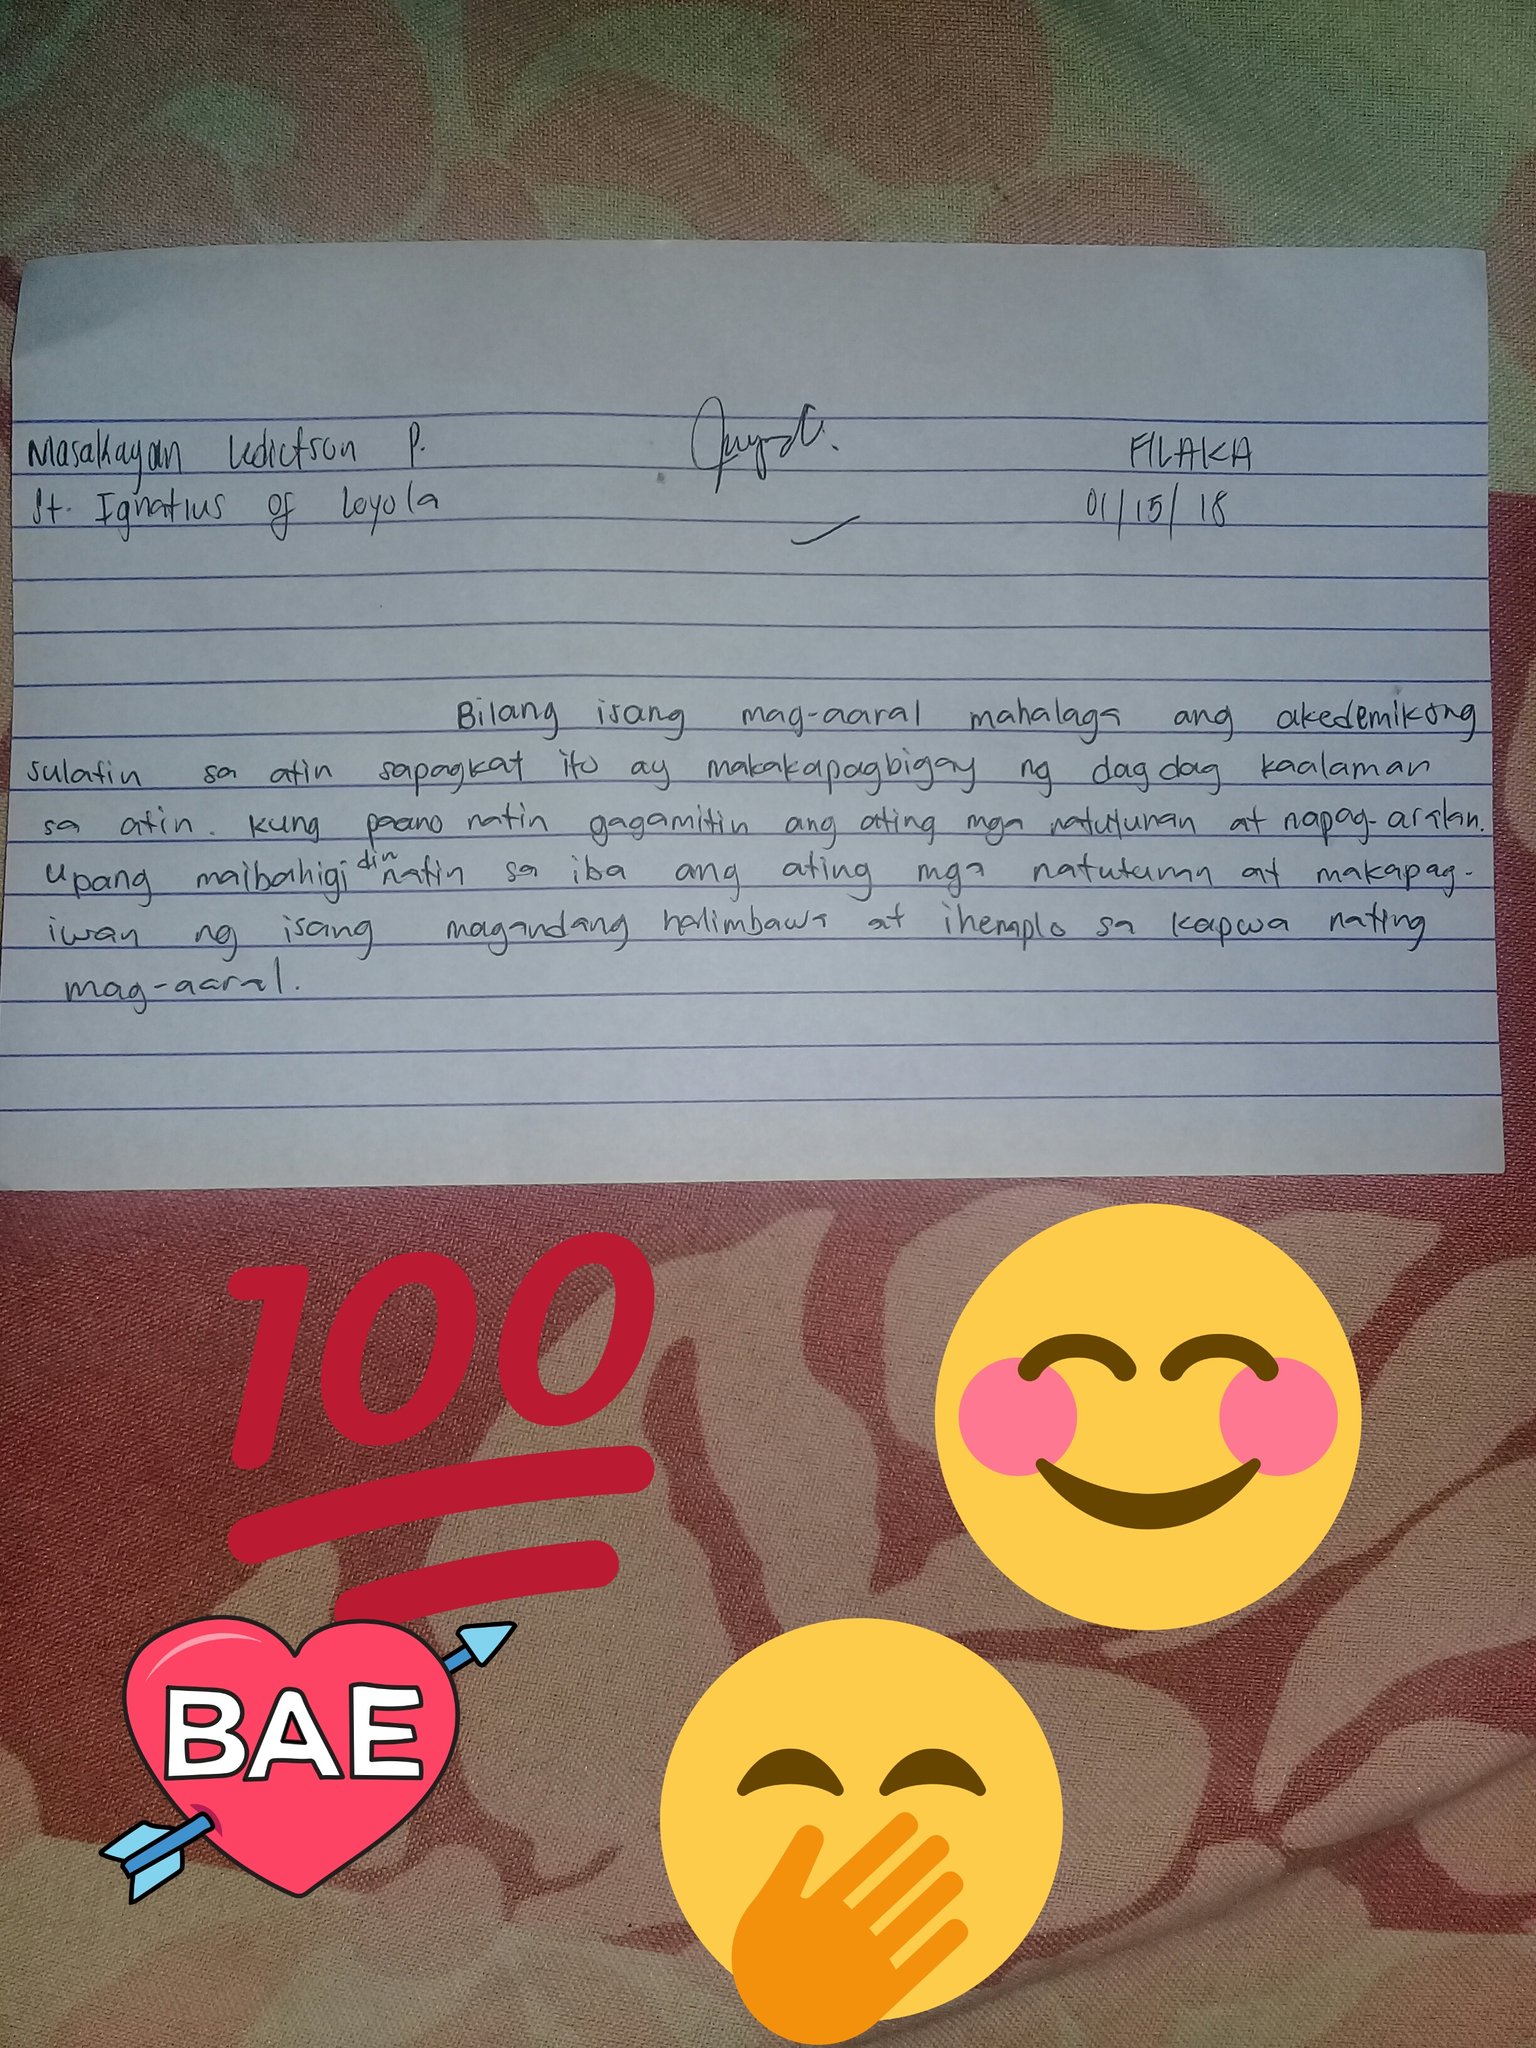 Masakayan Ledictson P.
FILAKA
St. Ignatius of Loyola
01/15/18
Bilang isang mag-aaral mahalaga ang akedemikong
sulatin sa atin sapagkat ito ay makakapagbigay ng dagdag kaalaman
sa atin. kung paano natin gagamitin ang ating mga natutunan at napag-aralan.
upang maibahigi din natin sa iba ang ating mga natutunan at makapag-
iwan ng isang magandang halimbawa at ihemplo sa kapwa nating
mag-aaral.
100
BAE